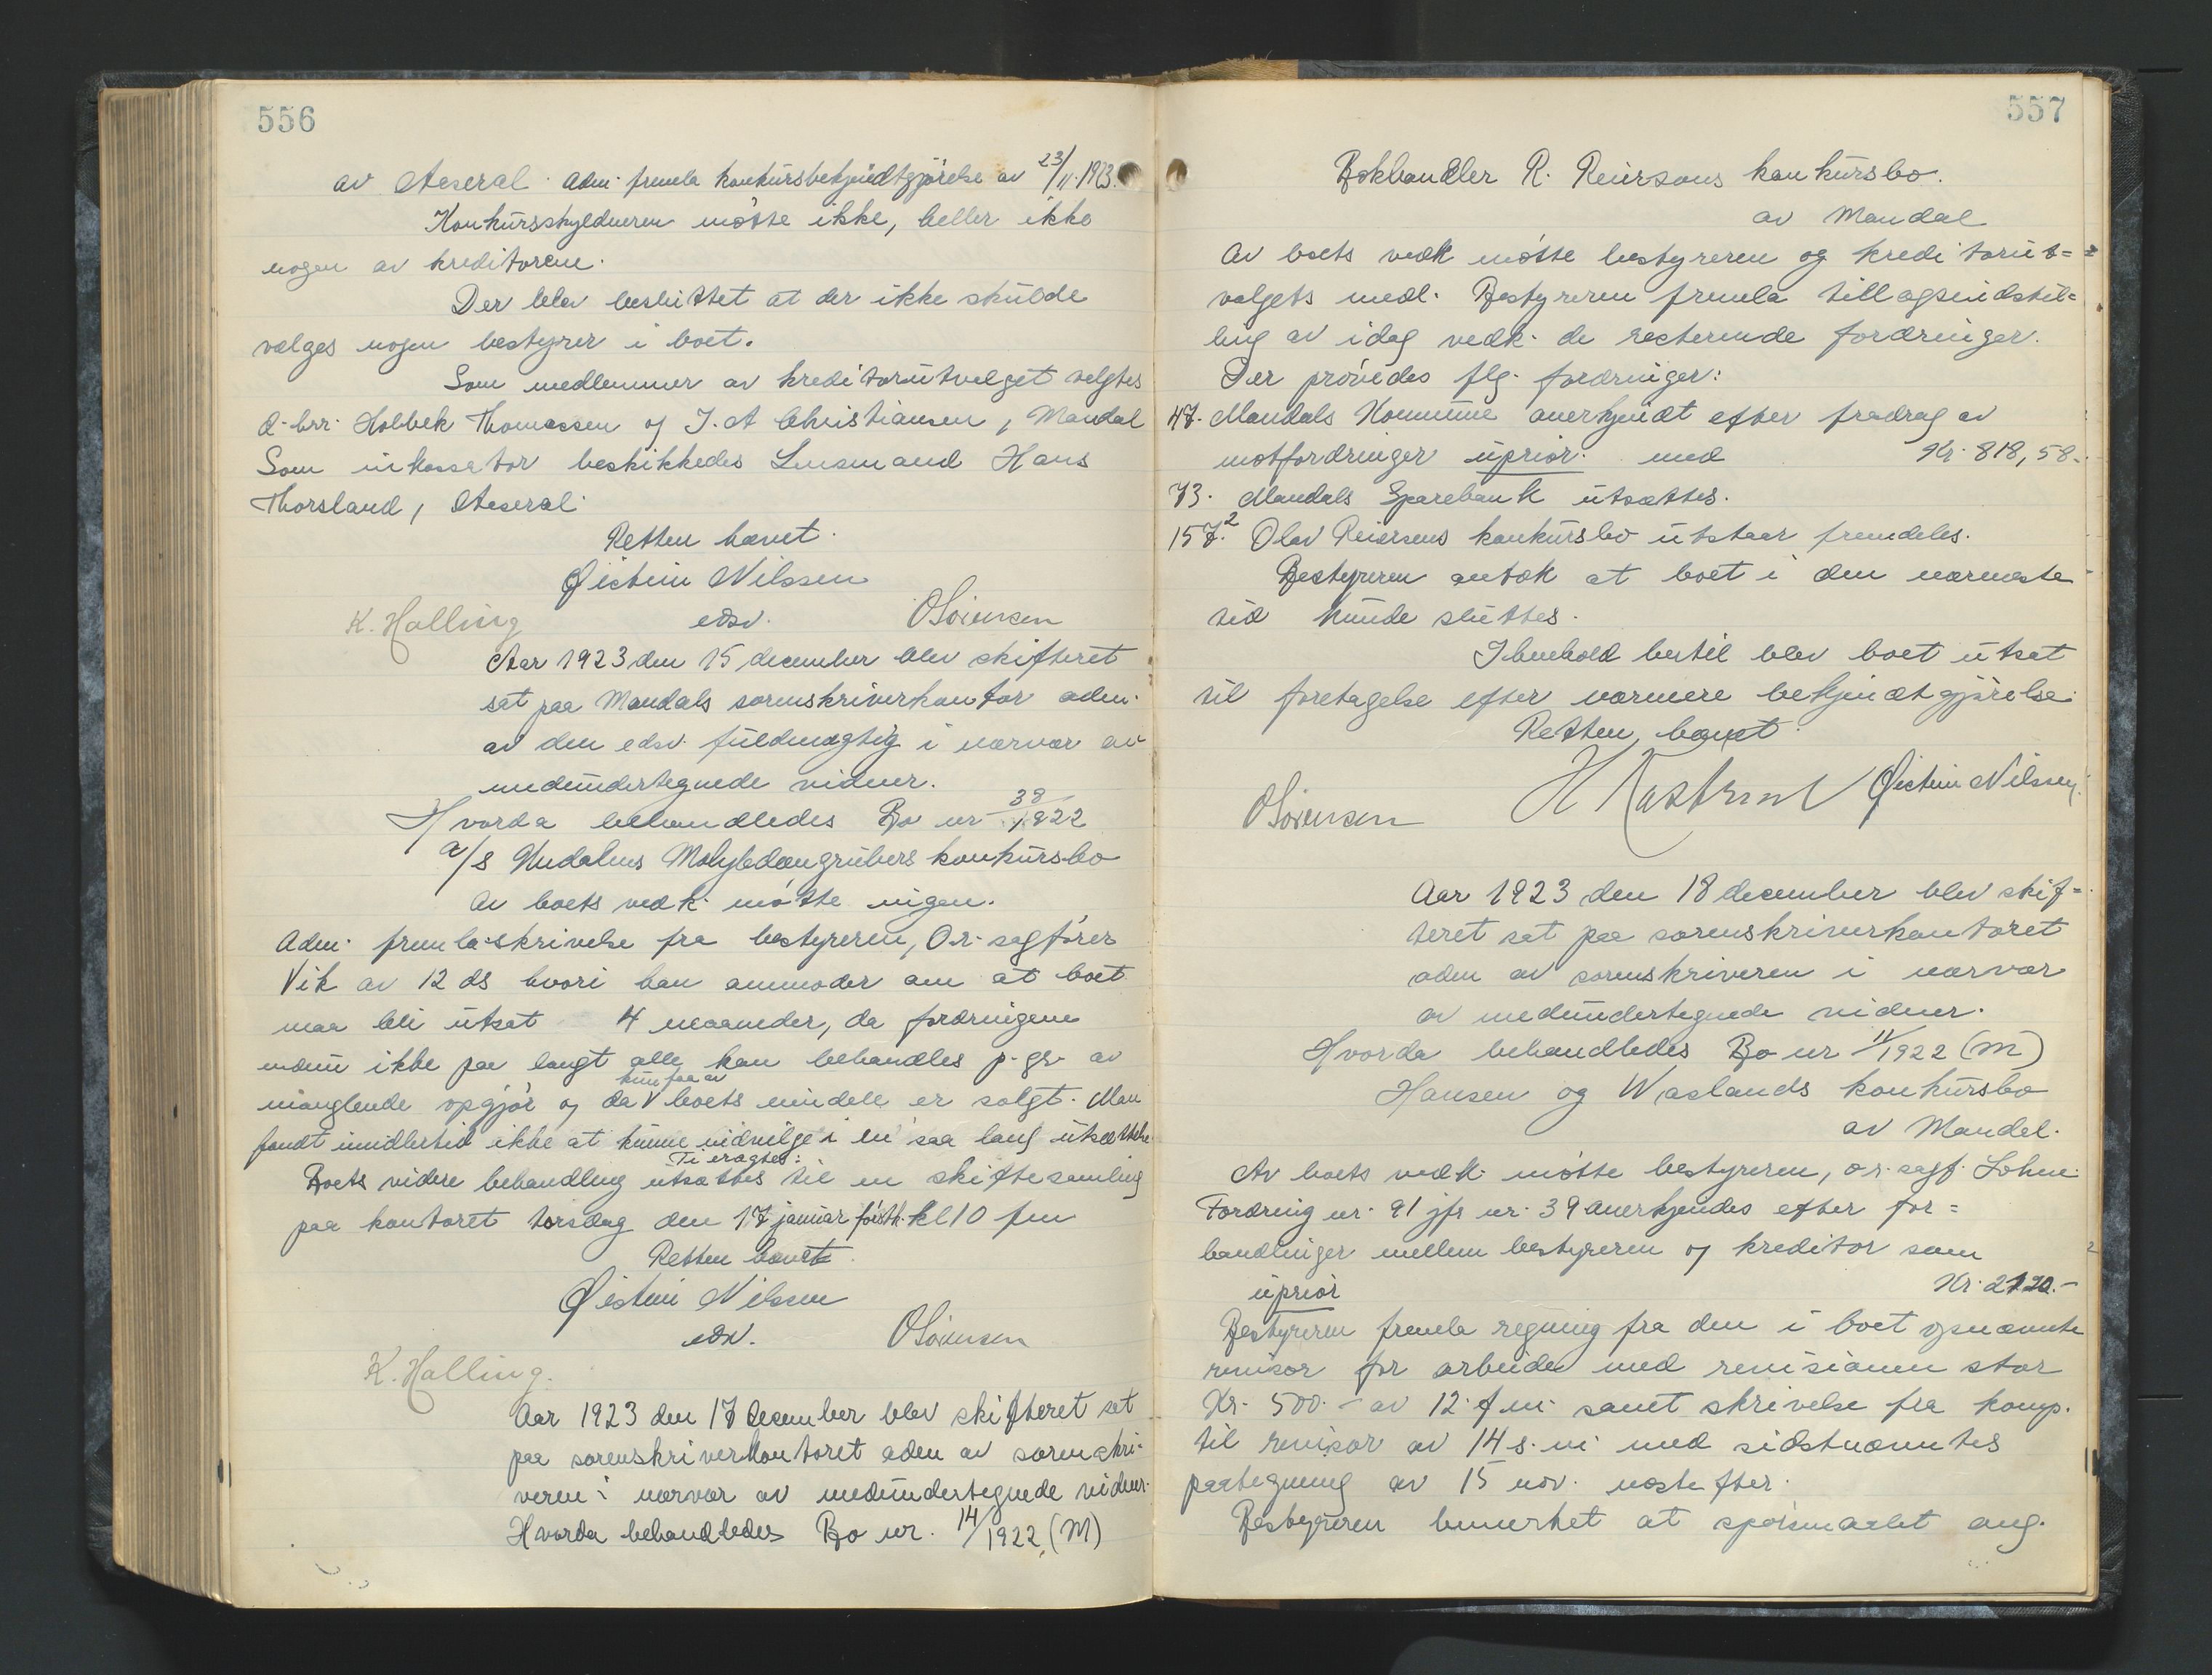 556
av Aaseral. Adm. fremla konkursbekjendtgjørelse av 23/11.1923.
Konkursskyldneren møtte ikke, heller ikke
nogen av kreditorene.
Der blev besluttet at der ikke skulde
vælges nogen bestyrer i boet.
Som medlemmer av kreditorutvalget valgtes
d.hrr. Holbek Thomassen og J. A Christiansen, Mandal
Som inkassator beskikkedes Lensmand Hans
Thorsland, Aaseral.
Retten hævet.
Øistein Nilssen
edsv.
K. Halling
OSørensen
Aar 1923 den 15 december blev skifteret
sat paa Mandals sorenskriverkontor adm.
av den edsv. fuldmægtig i nærvær av
medundertegnede vidner.
Hvorda behandledes Bo nr 38/1922
A/S Knabens Molybdængrubers konkursbo
Av boets vedk. møtte ingen.
Adm. fremla skrivelse fra bestyreren, O.r.sagfører
Vik av 12 ds hvori han anmoder om at boet
maa bli utsat 4 maaneder, da fordringene
endnu ikke paa langt alle kan behandles p.gr. av
manglende opgjør og da kun faa av boets eiendele er solgt. Man
fandt imidlertid ikke at kunne indvilge i en saa lang utsættelse.
Ti eragtes:
Boets videre behandling utsættes til en skiftesamling
paa kontoret torsdag den 17 januar førstk. kl 10 fm
Retten hævet.
Øistein Nilssen
edsv.
OSørensen
K. Halling.
Aar 1923 den 17 december blev skifteret sat
paa sorenskriverkontoret adm av sorenskri-
veren i nærvær av medundertegnede vidner.
Hvorda behandledes Bo nr. 14/1922, (M)
557
Bokhandler R. Reiersens konkursbo.
av Mandal
Av boets vedk møtte bestyreren og kreditorut=
valgets medl. Bestyreren fremla tillægsindstil=
ling av idag vedk. de resterende fordringer.
Der prøvedes flg. fordringer:
47. Mandals Kommune anerkjendt efter fradrag av
motfordringer uprior. med Kr. 818,58.
73. Mandals Sparebank utsættes.
157.² Olav Reiersens konkursbo utstaar fremdeles.
Bestyreren antok at boet i den nærmeste
tid kunde sluttes.
I henhold hertil blev boet utsat
til foretagelse efter nærmere bekjendtgjørelse.
Retten hævet.
OSørensen
Øistein Nilssen.
Aar 1923 den 18 december blev skif=
teret sat paa sorenskriverkontoret
adm av sorenskriveren i nærvær
av medundertegnede vidner.
Hvorda behandledes Bo nr 11/1922 (M)
Hansen og Waslands konkursbo
av Mandal.
Av boets vedk. møtte bestyreren, o.r.sagf. Lohne.
Fordring nr. 91 jfr nr. 39 anerkjendes efter for=
handlinger mellem bestyreren og kreditor som
uprior Kr. 2120.-
Bestyreren fremla regning fra den i boet opnævnte
revisor for arbeide med revisionen stor
Kr. 500.- av 12. f.m. samt skrivelse fra komp.
til revisor av 14 s.m. med sidstnævntes
paategning av 15 nov. næstefter.
Bestyreren bemerket at spørsmaalet ang.